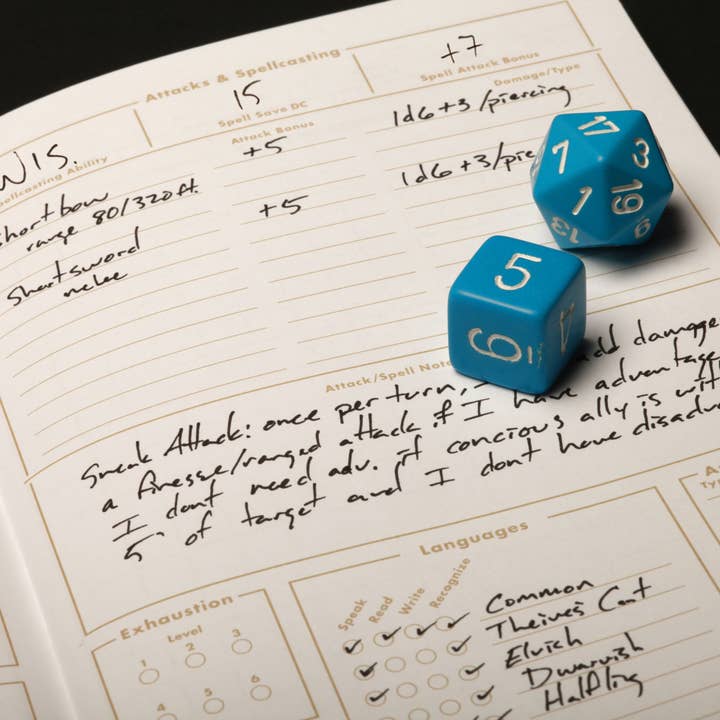 Attacks & Spellcasting
WIS.
Spellcasting Ability
15
Spell Save DC
+7
Spell Attack Bonus
Attack Bonus
Damage/Type
shortbow
range 80/320 ft.
+5
1d6+3/piercing
Shortsword
melee
+5
1d6+3/pie
17
7
3
1
19
13
9
5
6
4
Attack/Spell Note
Sneak Attack: once per turn, add damage
a finesse/ranged attack if I have advantage
I dont need adv. if concious ally is with
5' of target and I dont have disadv
Exhaustion
Level
1
2
3
4
5
6
Languages
Speak
Read
Write
Recognize
Common
Theives Cant
Elvish
Dwarvish
Halfling